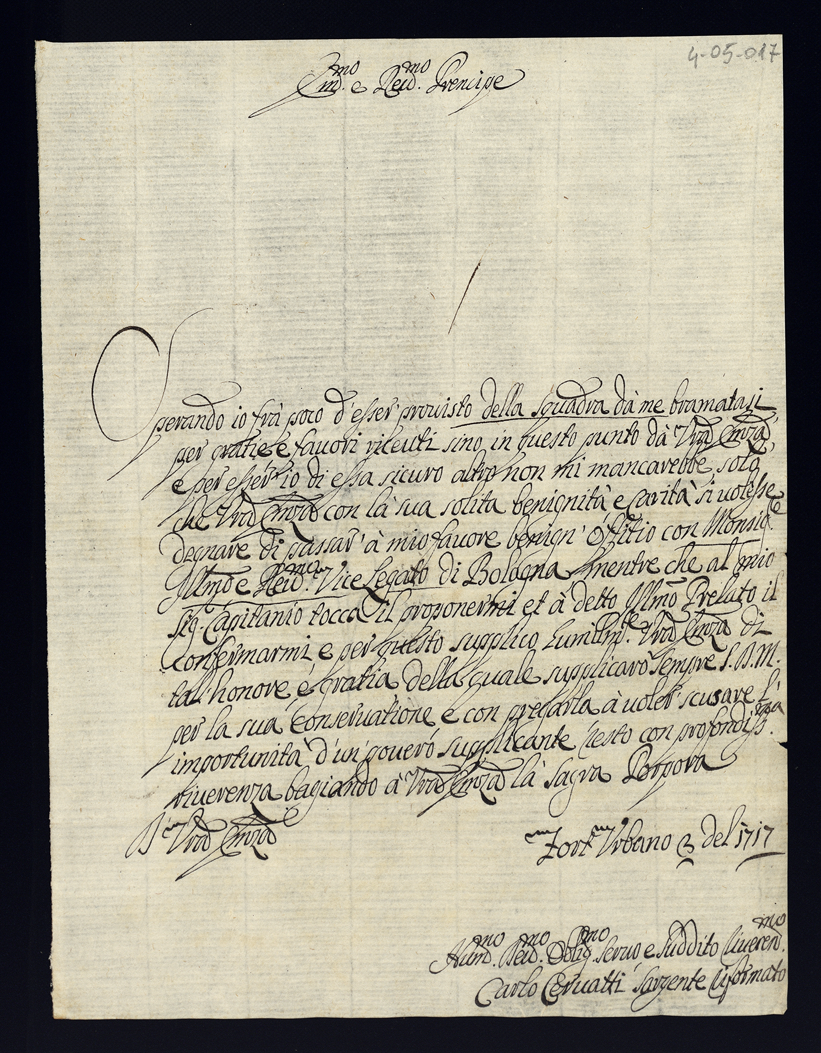 4-05-017
Em.mo e Reid.mo Prencipe
Sperando io frà poco d'esser provisto della squadra dà me bramatasi
per gratie e favori riceuti sino in questo punto dà Vrã Emzã,
e per esser io di essa sicuro altro non mi mancarebbe solo,
che Vrã Emzã con là sua solita benignità e carità si volesse
degnare di passar' à mio favore benign' Offitio con Monsig.e
Illmo e Reid.mo Vice Legato di Bologna mentre che al mio
Sig. Capitanio tocca il propormermi et à detto Illmõ Prelato il
confermarmi e per questo supplico humilm.te Vrã Emzã di
tal' honore, e gratia della quale supplicarò sempre S.D.M.
per la sua conservatione e con pregarla à voler scusare l'
importunità d'un povero supplicante resto con profondiss.ma
riverenza bagiando à Vrã Emzã là sagra Porpora
D Vrã Emzã
Fort. Urbano 3 del 1717
Hum.mo Reid.mo Oblig.mo Servo e Suddito Riveren.mo
Carlo Cervatti Sargente Riformato